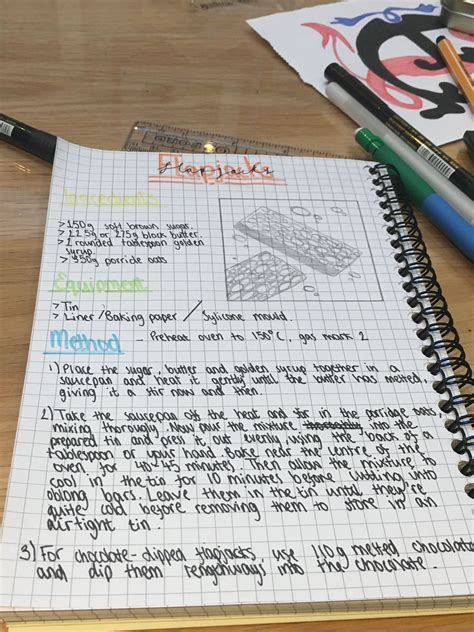 Flapjacks
Ingredients
> 150g soft brown sugar.
> 225g or 275g block butter.
> 1 rounded tablespoon golden
syrup.
> 350g porride oats
Equipment
> Tin
> Liner / Baking paper / Sylicone mould.
Method - Preheat oven to 150°C, gas mark 2
1) Place the sugar, butter and golden syrup together in a
saucepan and heat it gently until the butter has melted,
giving it a stir now and then.
2) Take the saucepan off the heat and stir in the porridge oats
mixing thorougly. Now pour the mixture into the
prepared tin and press it out evenly, using the back of a
tablespoon or your hand. Bake near the centre of the
oven for 40-45 minutes. Then allow the mixture to
cool in the tin for 10 minutes before cutting into
oblong bars. Leave them in the tin until they're
quite cold before removing them to store in an
airtight tin.
3) For chocolate-dipped flapjacks, use 110g melted chocolate
and dip them lengthways into the chocolate.